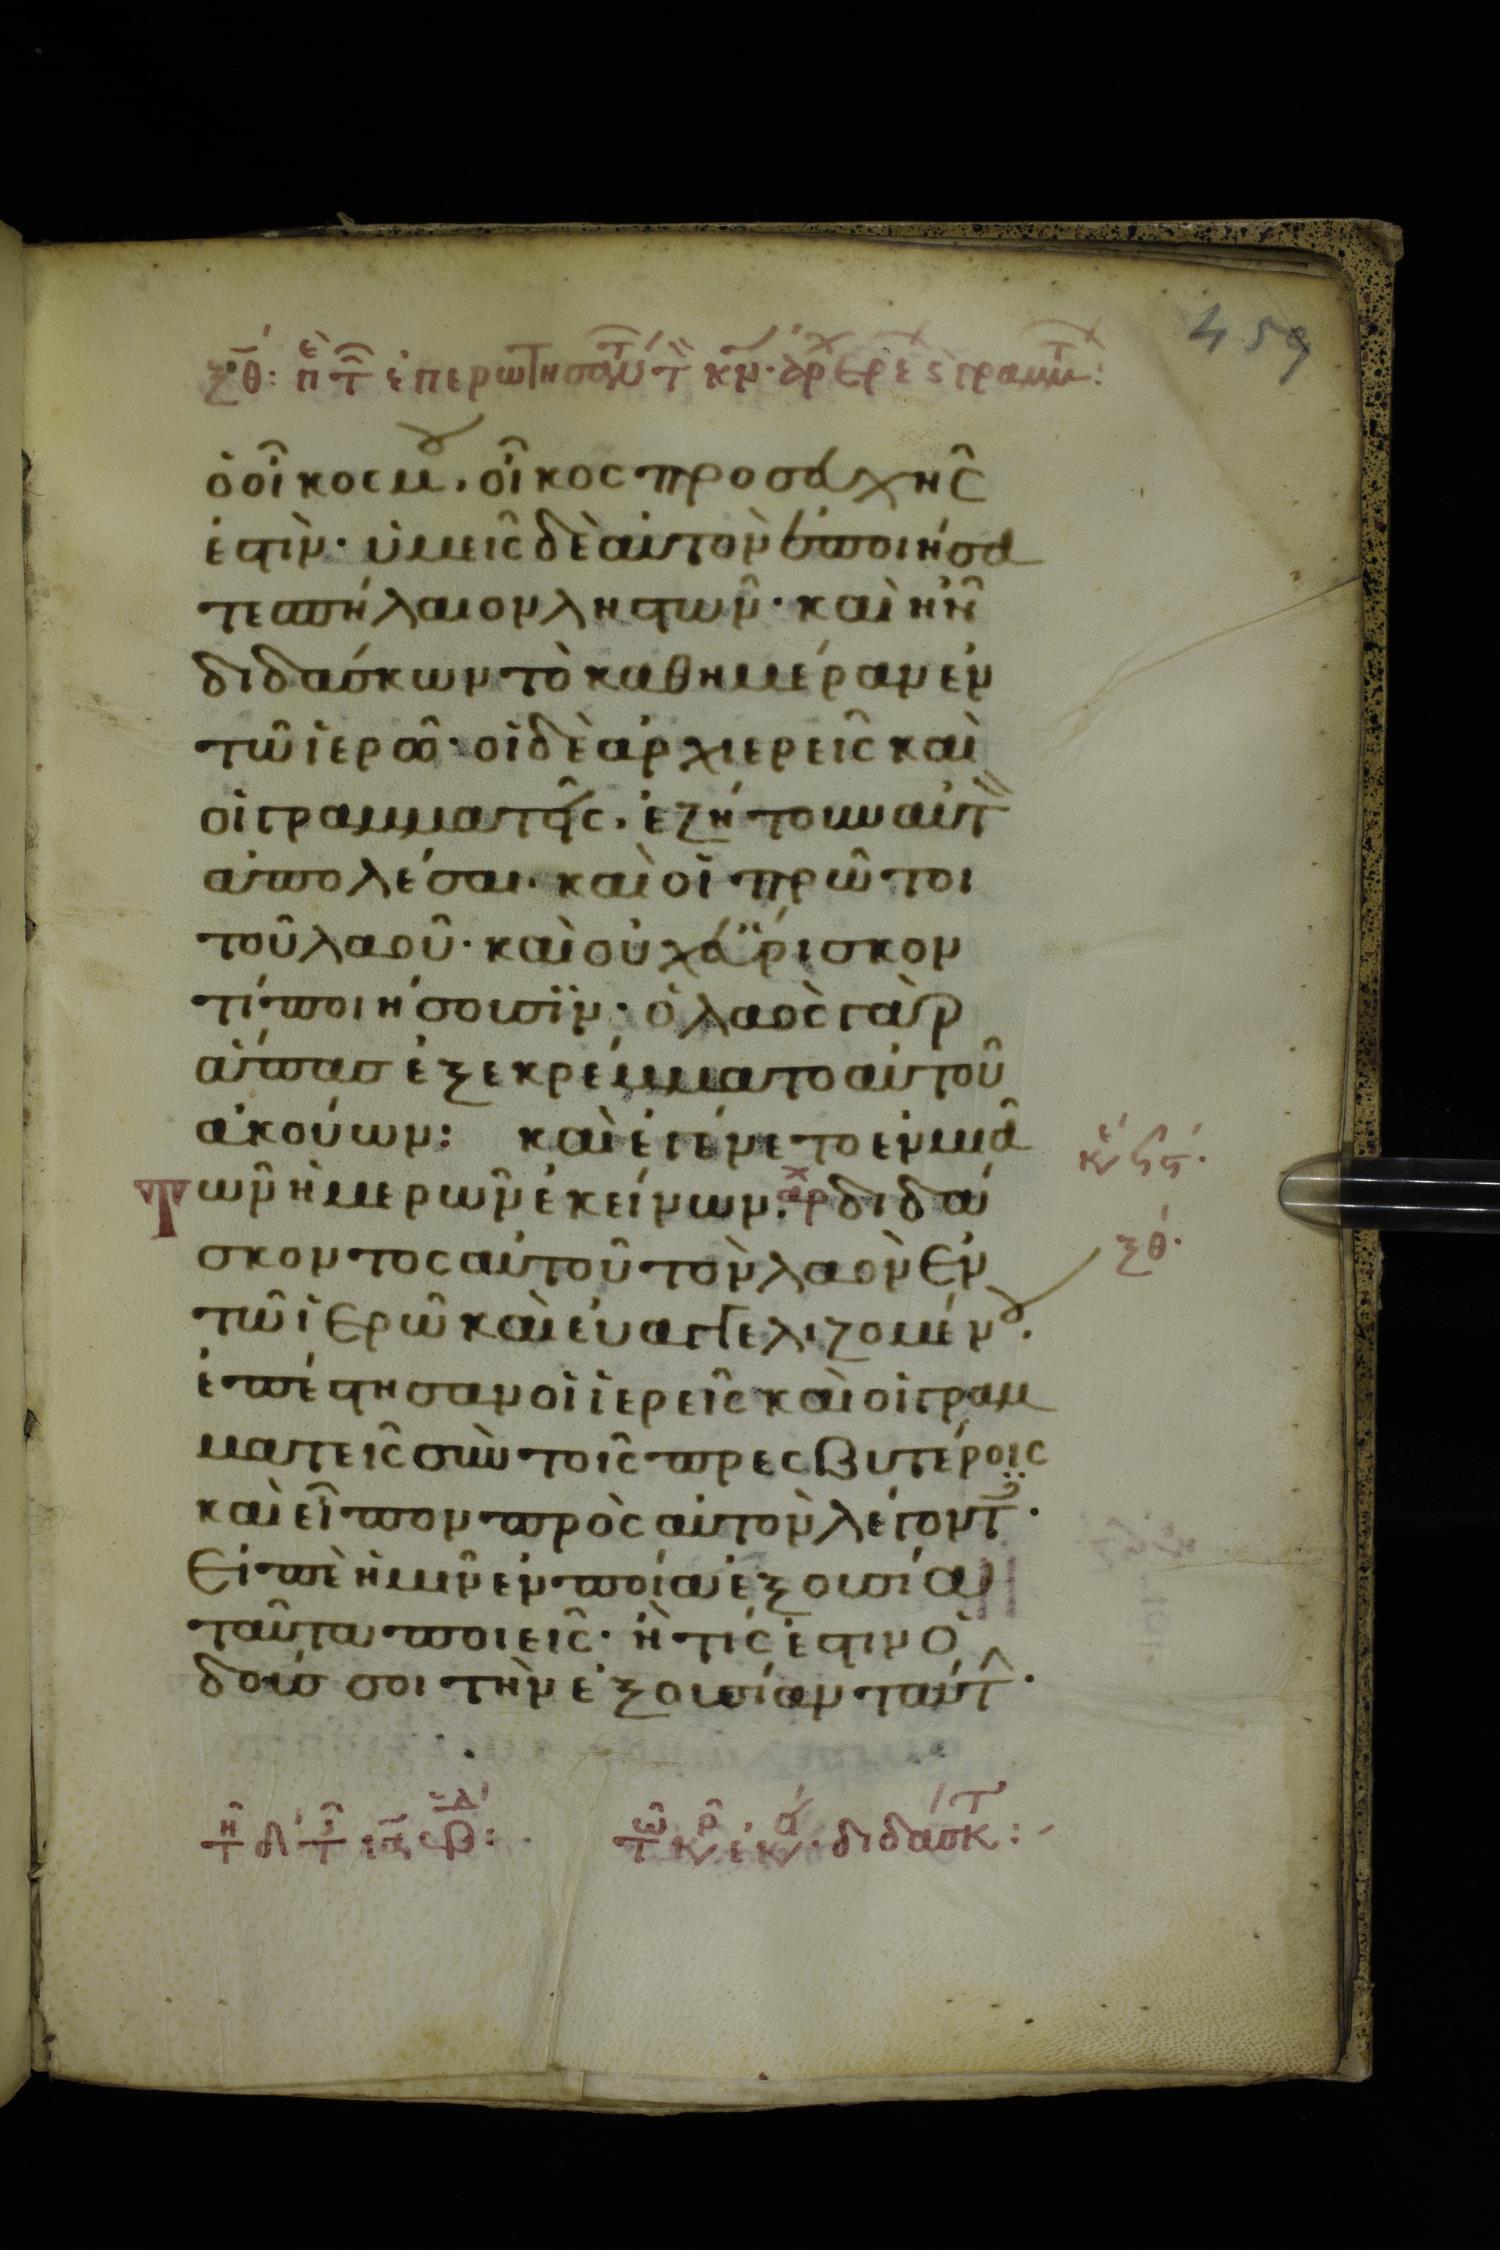 459
ξθ: περὶ τ ἐπερωτησαντ τ κν· ἀρχιερε ς γραμμτ:
ὁ οἶκος μου, οἶκος προσευχῆς
ἐστὶν· ὑμεῖς δὲ αὐτὸν ἐποιήσα
τε σπήλαιον ληστῶν· καὶ ἦν
διδάσκων τὸ καθημέραν ἐν
τῶ ἱερῶ· οἱ δὲ ἀρχιερεῖς καὶ
οἱ γραμματεῖς, ἐζήτουν αὐτὸν
ἀπολέσαι· καὶ οἱ πρῶτοι
τοῦ λαοῦ· καὶ οὐχ εὕρισκον
τί ποιήσουσϊν· ὁ λαὸς γὰρ
ἅπας ἐξεκρέμματο αὐτοῦ
ἀκούων: καὶ ἐγένετο ἐν μιᾶ
Τῶν ἡμερῶν ἐκείνων. ἀρχ διδά
σκοντος αὐτοῦ τὸν λαὸν ἐν
τῶ ἱερῶ καὶ εὐαγγελιζομένου.
ἐπέστησαν οἱ ἱερεῖς καὶ οἱ γραμ
ματεῖς σὺν τοῖς πρεσβυτέροις
καὶ εἶπον πρὸς αὐτὸν λέγοντες·
Εἰπὲ ἡμῖν ἐν ποία ἐξουσία
ταῦτα ποιεῖς· ἢ τίς ἐστιν ὁ
δούς σοι τὴν ἐξουσίαν ταύτην·
ξθ·
διδάσκ: